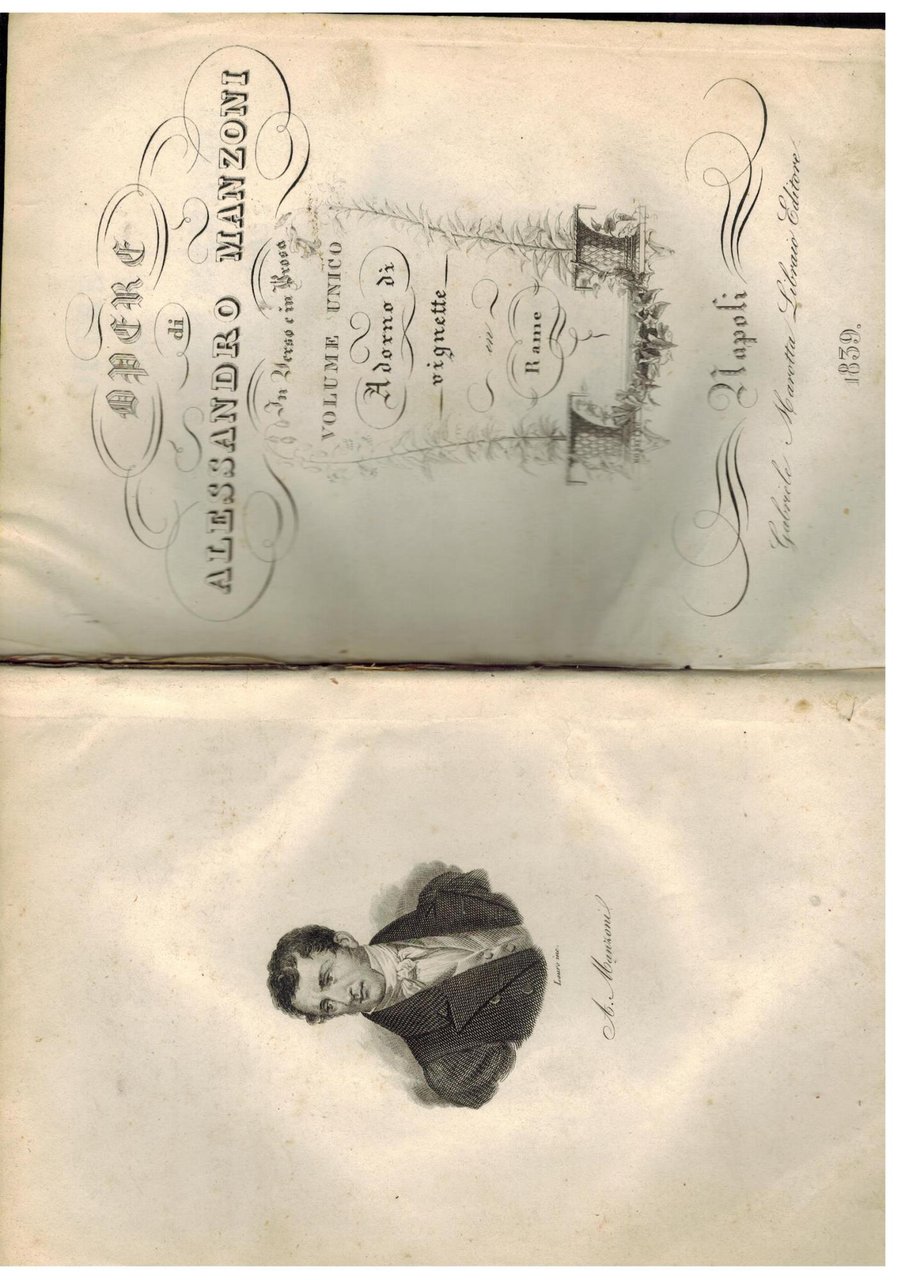 A. Manzoni
OPERE
di
ALESSANDRO MANZONI
In Verso e in Prosa
VOLUME UNICO
Adorno di
vignette
in
Rame
Napoli
Gabriele Marotta Libraio Editore
1839.